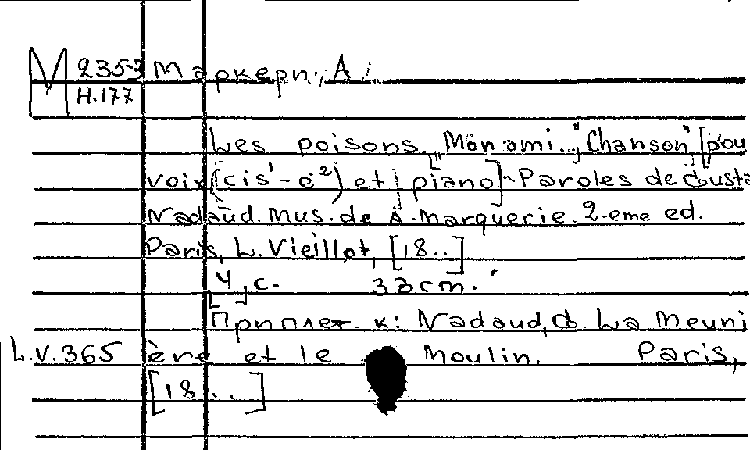 М 2353 Маркери, А.
Н.177
Les poisons. ["Mon ami..." Chanson] [pou
voix (cis¹-e²) et piano]. Paroles de Gusta
Nadaud. Mus. de A. Marquerie. 2-eme ed.
Paris, L. Vieillot, [18..]
[4] с. 33 cm.
Приплет к: Nadaud, G. La Meuni
L.V.365 ère et le moulin. Paris,
[18..]